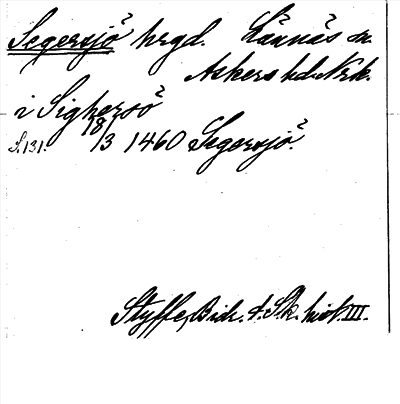 Segersjö hrgd. Lännäs sn.
Askers hd. Nrk.
i Sighersö
18/3 1460 Segersjö.
S. 131.
Styffe, Bidr. t. Sk. hist. III.